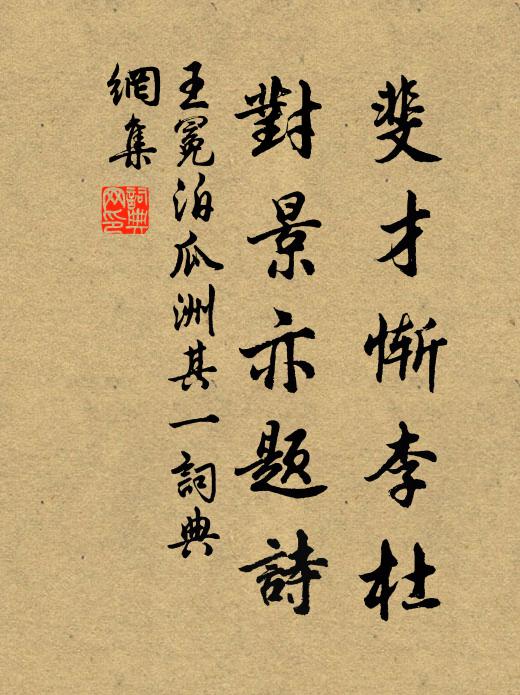 斐才慚李杜
對景亦題詩
王冕泊瓜洲其一詞典
網集
詞典网印